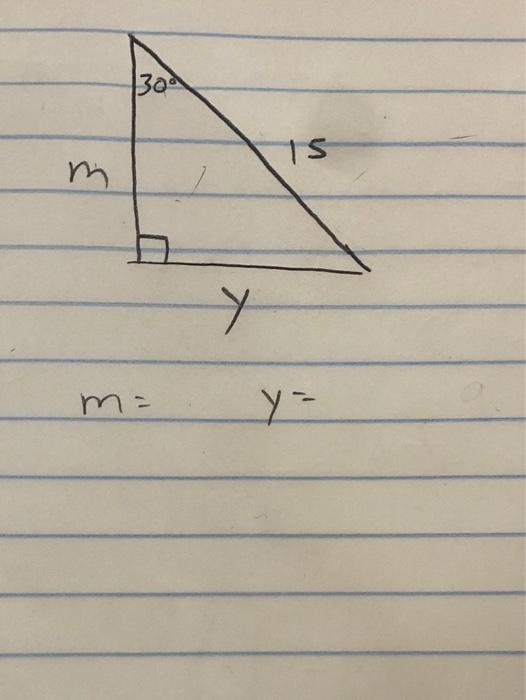 30°
m
15
y
m= y=